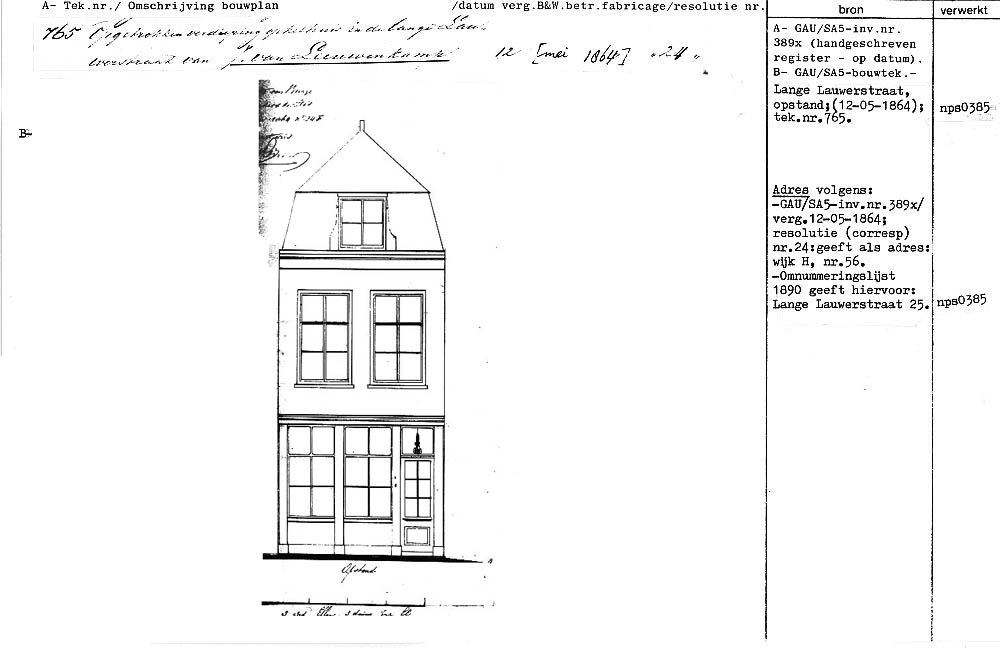 A- Tek.nr./ Omschrijving bouwplan /datum verg.B&W.betr.fabricage/resolutie nr.
bron
verwerkt
765 Opgetrokken verdieping op het huis in de lange Lau-
werstraat van J. van Leeuwenkamp 12 [mei 1864] "24"
A- GAU/SA5-inv.nr.
389x (handgeschreven
register - op datum).
B- GAU/SA5-bouwtek.-
Lange Lauwerstraat,
opstand;(12-05-1864);
tek.nr.765.
nps0385
B-
Adres volgens:
-GAU/SA5-inv.nr.389x/
verg.12-05-1864;
resolutie (corresp)
nr.24:geeft als adres:
wijk H, nr.56.
-Omnummeringslijst
1890 geeft hiervoor:
Lange Lauwerstraat 25.
nps0385
Opstand